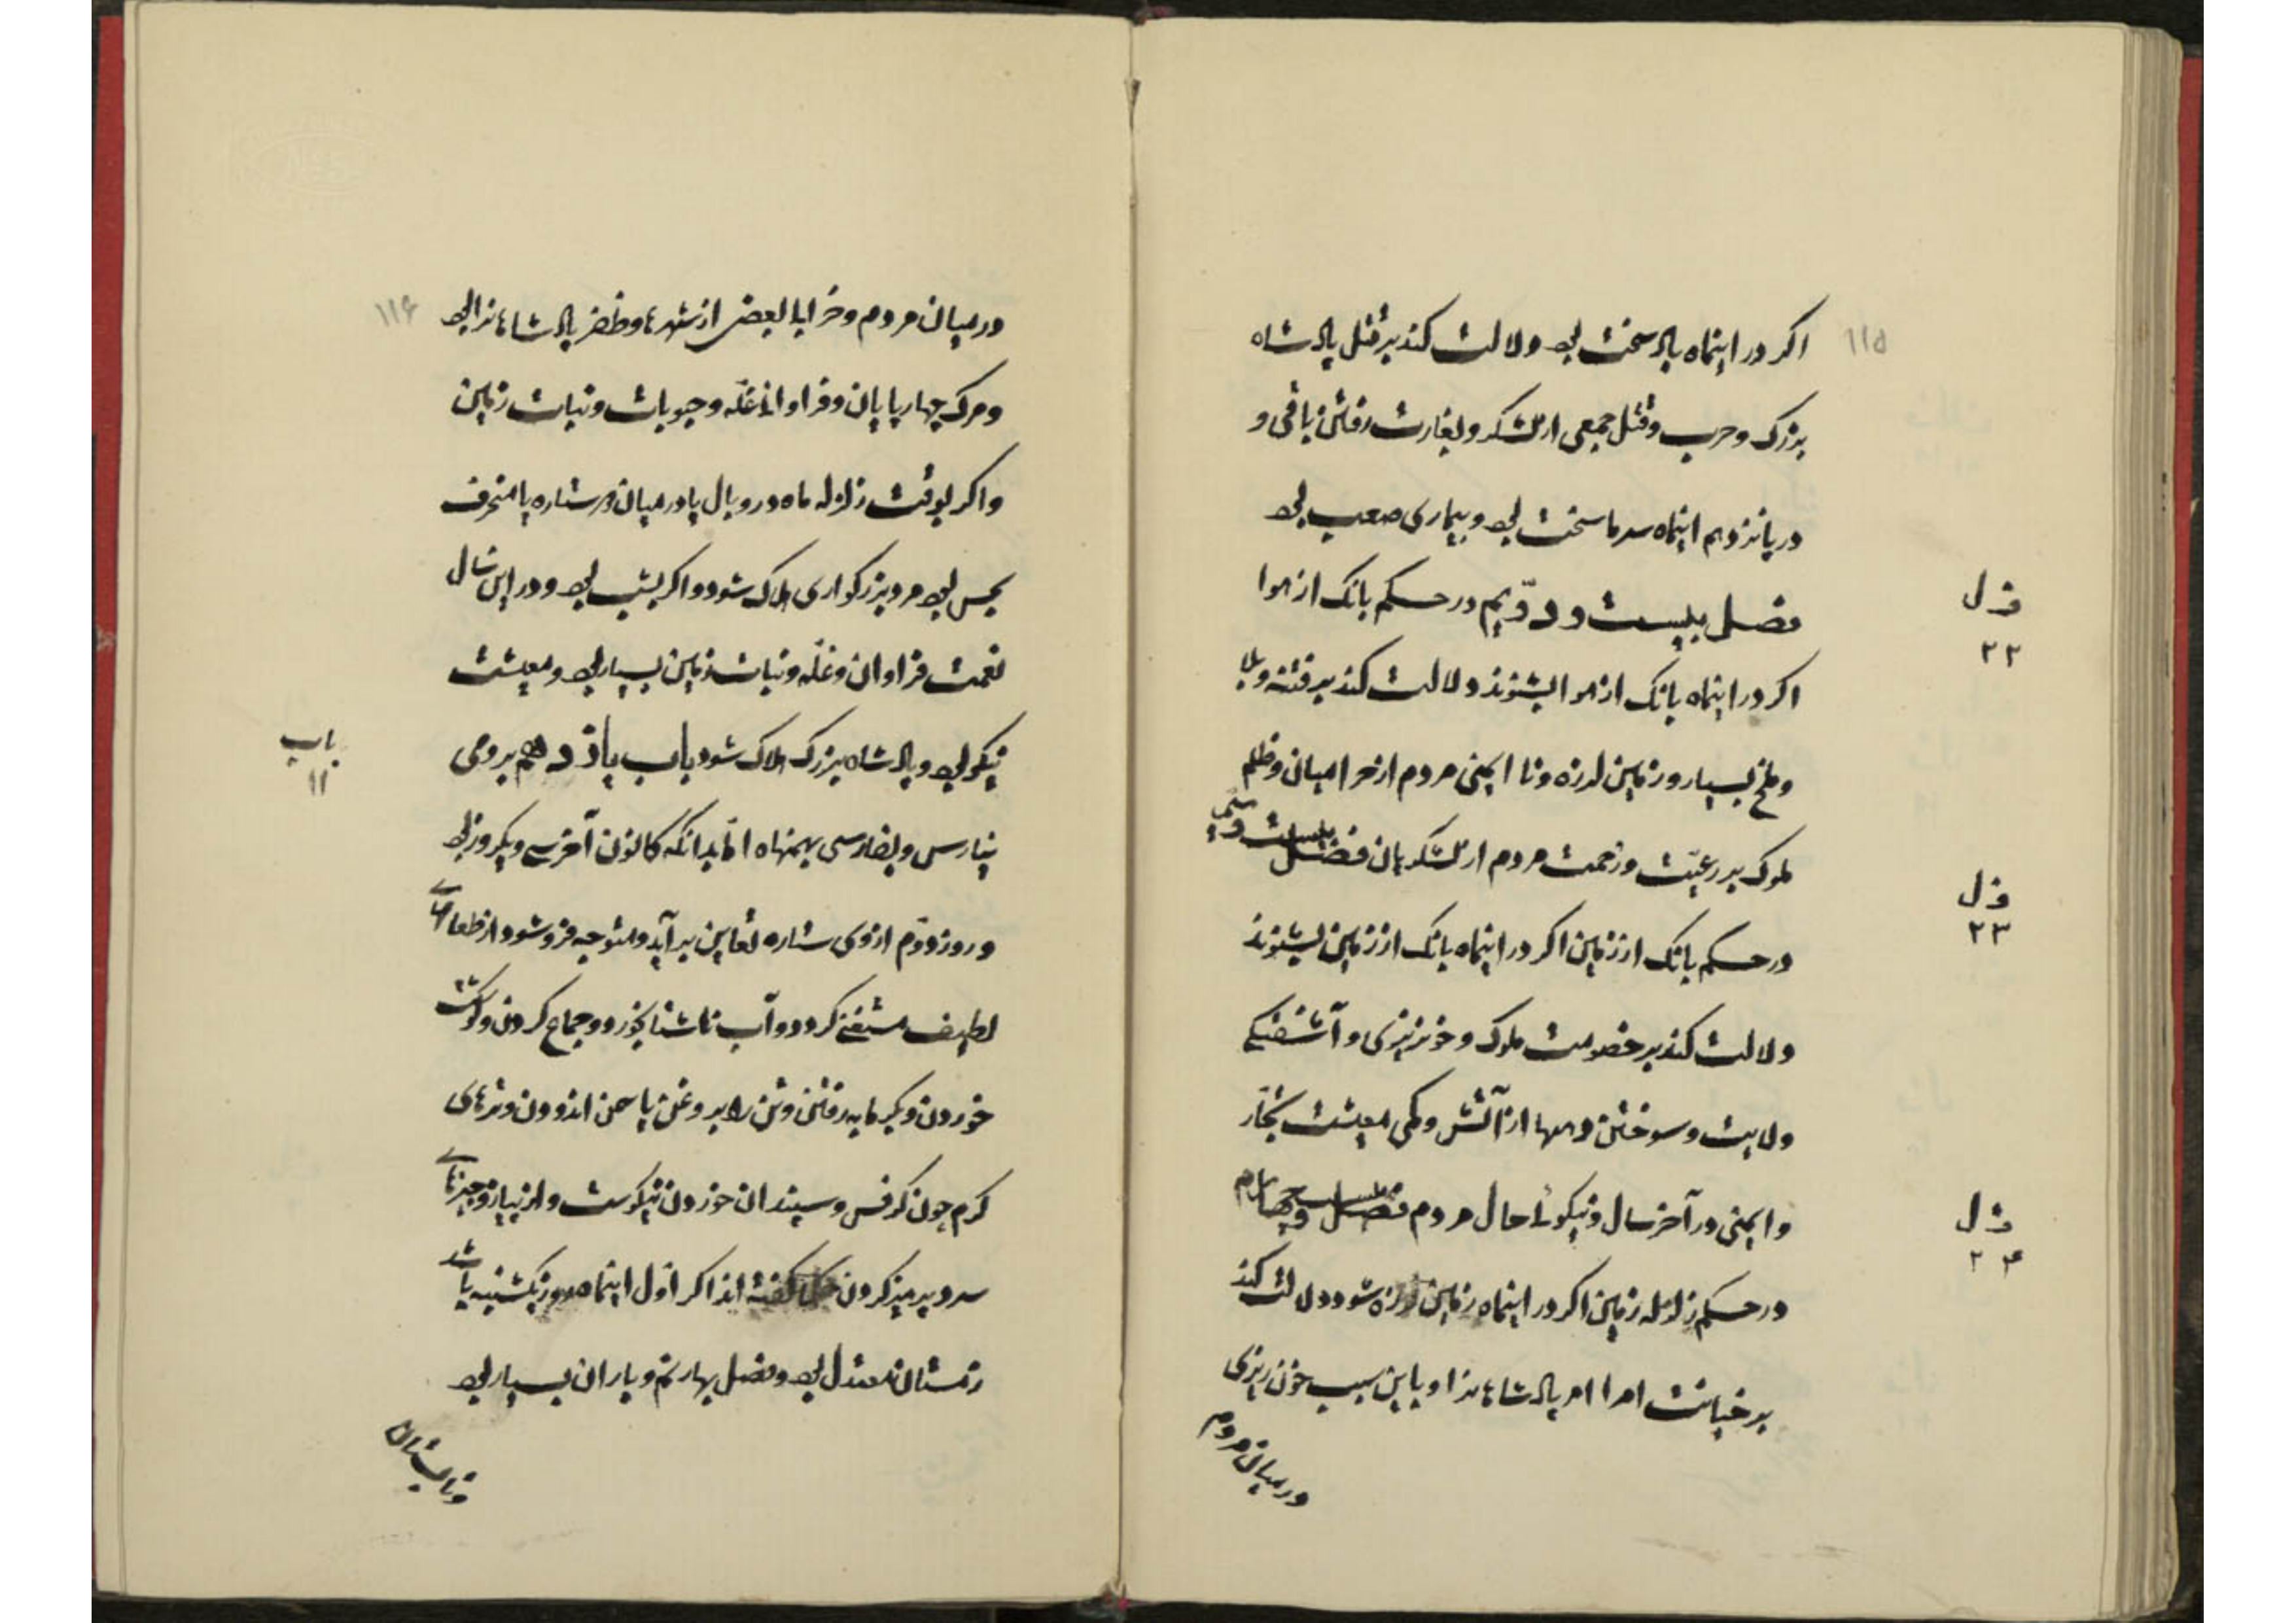 ۱۱۵
اکر در اینماه باد سخت بود دلالت کند بر قتل پادشاه
بزرک و حرب و قتل جمعی از لشکر و بغارت رفتن باقی و
در پانزدهم اینماه سرما سخت بود و بیماری صعب بود
فصل بیست و دوّیم در حکم بانک از هوا
فصل
۲۲
اکر در اینماه بانک از هوا بشنوند دلالت کند بر فتنه و بلا
و ملخ بسیار و زمین لرزه و نا ایمنی مردم از حرامیان و ظلم
ملوک بر رعیّت و زحمت مردم از لشکریان فصل بیست و سیّم
فصل
۲۳
در حکم بانک از زمین اکر در اینماه بانک از زمین بشنوند
دلالت کند بر خصومت ملوک و خونریزی و آشفتکی
ولایت و سوختن دهها از آتش و کمی معیشت تجّار
و ایمنی در آخر سال و نیکوئی حال مردم فصل بیست و چهارم
فصل
۲۴
در حکم زلزله زمین اکر در اینماه زمین لرزه شود دلالت کند
بر خیانت امرا امر پادشاهانرا و باین سبب خون ریزی
در میان مردم
۱۱۶
در میان مردم و خرابا بعضی از شهرها و ظفر پادشاهانرا بود
و مرک چهارپایان و فراوانی غلّه و حبوبات و نبات زمین
و اکر بوقت زلزله ماه در وبال یا در میان دو ستاره یا منحرف
نحس بود مرد بزرکواری هلاک شود و اکر بشب بود و در این سال
نعمت فراوان و غلّه و نبات زمین بسیار بود و معیشت
نیکو بود و پادشاه بزرک هلاک شود باب یازدهم برومی
باب
۱۱
ینارس و بفارسی بهمنماه امّا بدانکه کانون آخر سی و یکروز بود
و روز دوّم ازوی ستاره ثعابین برآید و متوجه فروشود از طعامهای
لطیف منتفع کردد و آب ناشتا بخورد و جماع کردن و کوشت
خوردن و بکرمابه رفتن و تن را بروغن یاسمن اندودن و ترهای
کرم چون کرفس و سپندان خوردن نیکوست و از پیاز و چیزهای
سرد پرهیز کردن حکما کفته اند اکر اوّل اینماه روز یکشنبه باشد
زمستان معتدل بود و فصل بهار نم و باران بسیار بود
و تابستان